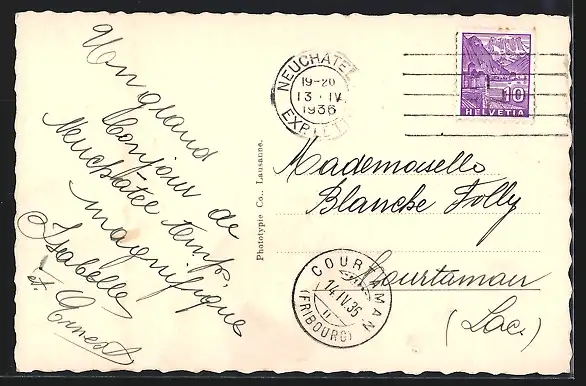 Un grand
bonjour de
Neuchâtel temps
magnifique
Isabelle
et Ernest
Phototypie Co., Lausanne.
NEUCHATEL
19-20
13·IV.
1936
10
HELVETIA
Mademoiselle
Blanche Folly
Courtaman
(Lac.)
COURTAMAN
14.IV.36
II
(FRIBOURG)